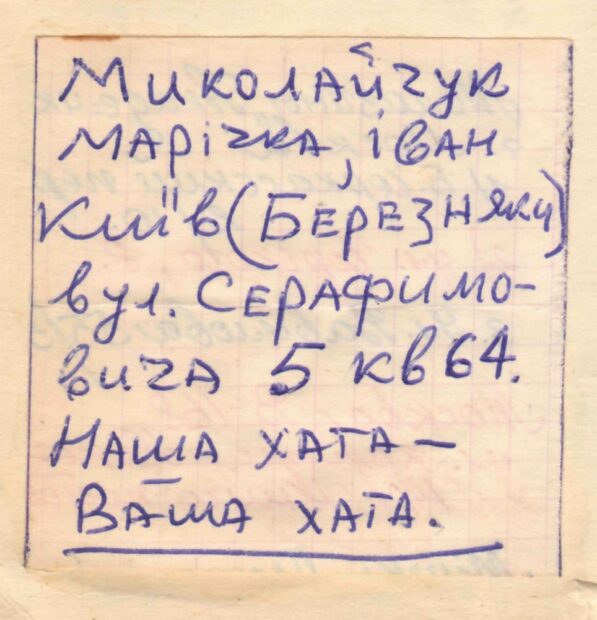 Миколайчук
Марічка, Іван
Київ (Березняки)
вул. Серафимо-
вича 5 кв 64.
Наша хата –
Ваша хата.